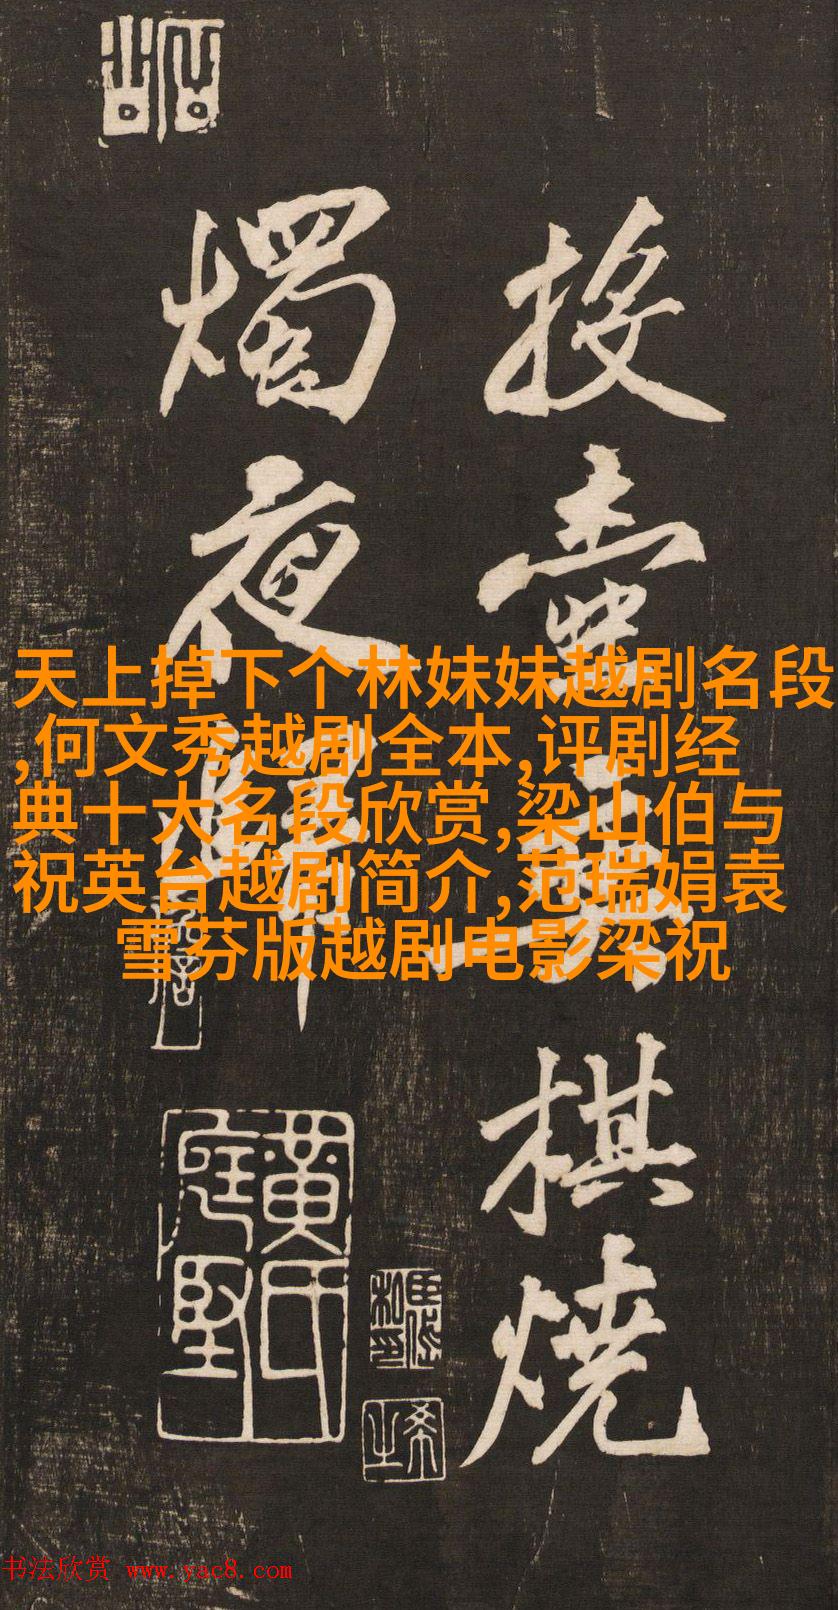 投壺棋燒
燭夜歸
天上掉下个林妹妹越剧名段
,何文秀越剧全本,评剧经
典十大名段欣赏,梁山伯与
祝英台越剧简介,范瑞娟袁
雪芬版越剧电影梁祝
黃氏
庭堅
书法欣赏 www.yac8.com